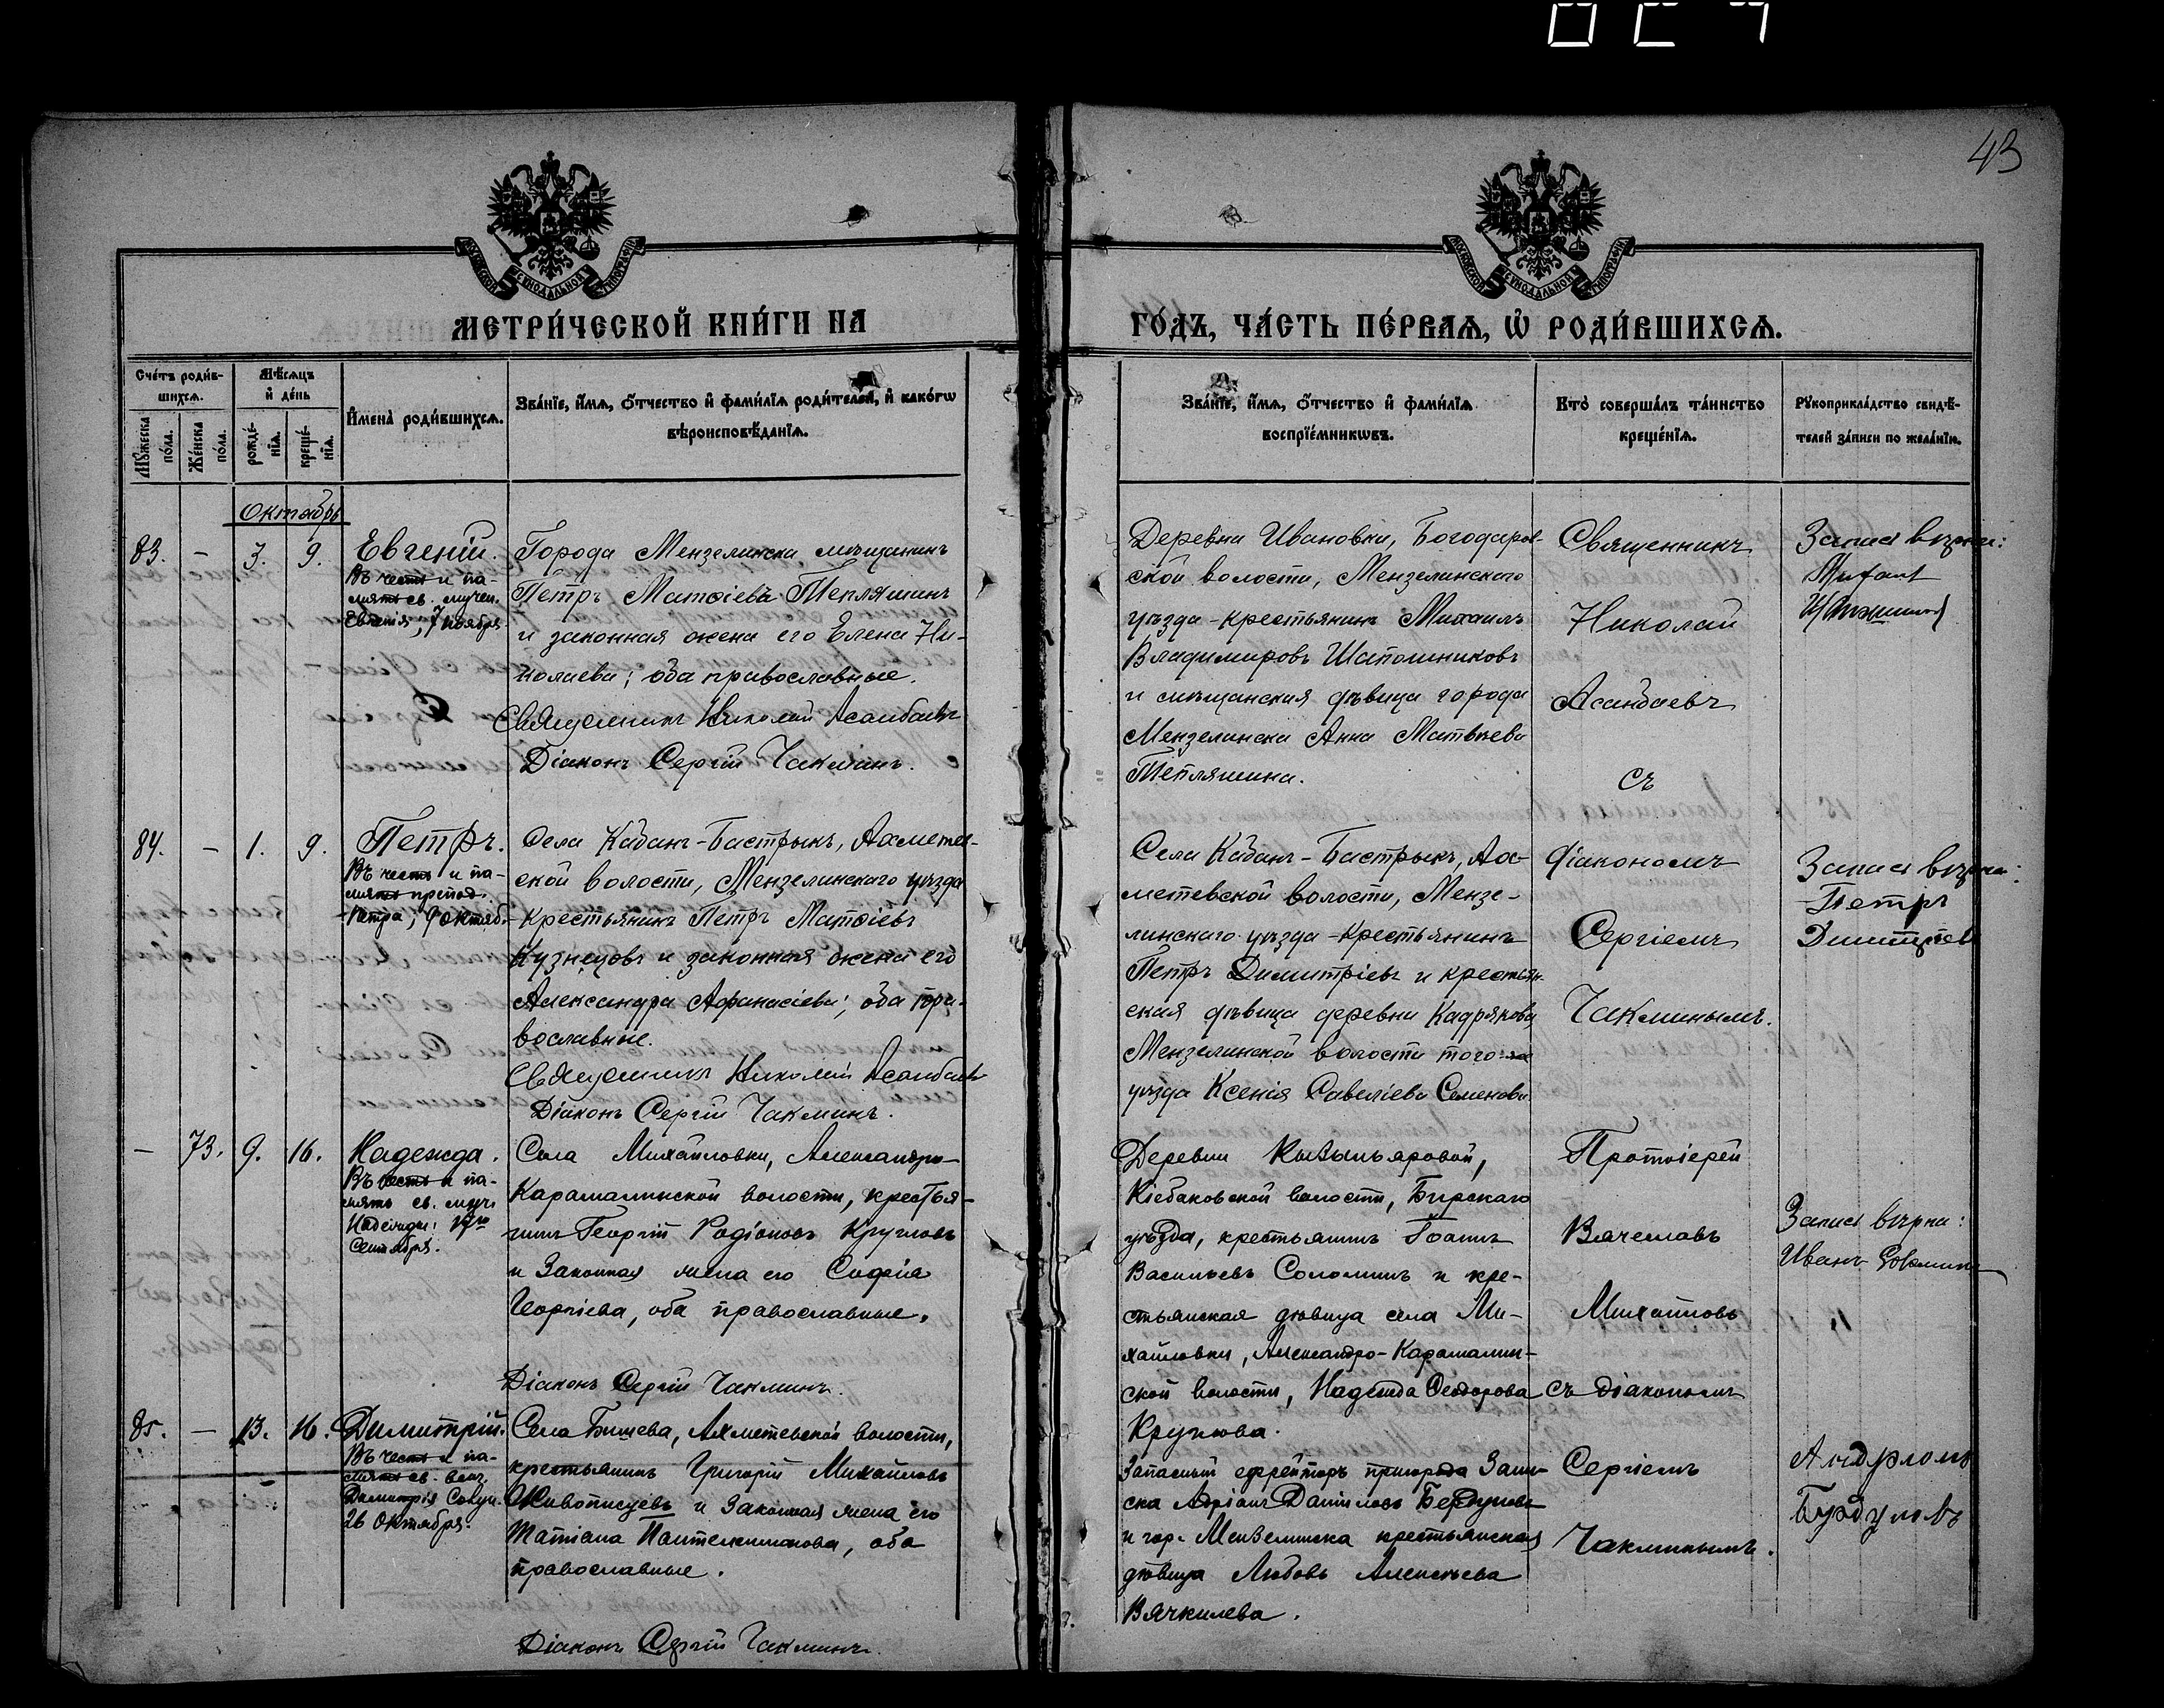 43
МОСКОВСКОЙ СѴНОДАЛЬНОЙ ТИПОГРАФІИ
МОСКОВСКОЙ СѴНОДАЛЬНОЙ ТИПОГРАФІИ
МЕТРИ́ЧЕСКОЙ КНИ́ГИ НА
ГО́ДЪ, ЧА́СТЬ ПЕ́РВАѦ, Ѡ РОДИ́ВШИХСѦ.
Сче́тъ роди́в-
шихсѧ.
Мѣ́сѧцъ
и́ де́нь
Мꙋ́жеска по́ла.
Же́нска по́ла.
рожде́-нїѧ.
креще́-нїѧ.
И́мена̀ роди́вшихсѧ.
Зва́нїе, и́мѧ, ѻ́тчество и́ фами́лїѧ роди́телей, и́ како́гѡ
вѣроисповѣ́данїѧ.
Зва́нїе, и́мѧ, ѻ́тчество и́ фами́лїѧ
воспрїе́мникѡвъ.
Кто̀ соверша́лъ та́инство
креще́нїѧ.
Рꙋкоприкла́дство свидѣ́-
телей за́писи по жела́нїю.
Октябрь
83. - 3. 9.
Евгеній.
Въ честь и па-
мять св. мучен.
Евгенія, 7 ноября.
Города Мензелинска мѣщанинъ
Петръ Матѳіевъ Тепляшинъ
и законная жена его Елена Ни-
колаева; оба православные.
Священникъ Николай Асанбаевъ
Діаконъ Сергій Чакминъ.
Деревни Ивановки, Богодаров-
ской волости, Мензелинскаго
уѣзда - крестьянинъ Михаилъ
Владимировъ Шапошниковъ
и мѣщанская дѣвица города
Мензелинска Анна Матвѣева
Тепляшина.
Священникъ
Николай
Асанбаевъ
съ
Запись вѣрна:
84. - 1. 9.
Петръ.
Въ честь и па-
мять препод.
Петра; 9 Октяб.
Села Кабанъ-Бастрыкъ, Ахметев-
ской волости, Мензелинскаго уѣзда
- крестьянинъ Петръ Матѳіевъ
Кузнецовъ и законная жена его
Александра Аѳанасіева; оба пра-
вославные.
Священникъ Николай Асанбаевъ
Діаконъ Сергій Чакминъ.
Села Кабанъ-Бастрыкъ, Ах-
метевской волости, Мензе-
линскаго уѣзда - крестьянинъ
Петръ Димитріевъ и крестьян-
ская дѣвица деревни Кадряковой
Мензелинской волости того-же
уѣзда Ксенія Савеліева Семенова
діакономъ
Сергіемъ
Чакминымъ.
Запись вѣрна:
Петръ
Димитріевъ
- 73. 9. 16.
Надежда.
Въ честь и па-
мять св. муч.
Надежды: 17го
Сентября.
Села Михайловки, Александро-
Карамалинской волости, крестья-
нинъ Георгій Родіоновъ Кругловъ
и Законная жена его Софія
Георгіева, оба православные.
Діаконъ Сергій Чакминъ.
Деревни Кызылъяровой,
Кіебаковской волости, Бирскаго
уѣзда, крестьянинъ Іоаннъ
Васильевъ Соломинъ и кре-
стьянская дѣвица села Ми-
хайловки, Александро-Карамалин-
ской волости, Надежда Ѳеодорова
Круглова.
Протоіерей
Вячеславъ
Михайловъ
съ діакономъ
Запись вѣрна:
Иванъ Соломинъ
85. - 13. 16.
Димитрій.
Въ честь и па-
мять св. вели.
Димитрія Солун.
26 Октября.
Села Бишева, Ахметевской волости,
крестьянинъ Григорій Михайловъ
Живописцевъ и Законная жена его
Татіана Пантелеимонова, оба
православные.
Діаконъ Сергій Чакминъ.
Запасный ефрейторъ пригорода Заин-
ска Адріанъ Даниловъ Бердуновъ
и гор. Мензелинска крестьянская
дѣвица Любовь Алексѣева
Вячкилева.
Сергіемъ
Чакминымъ.